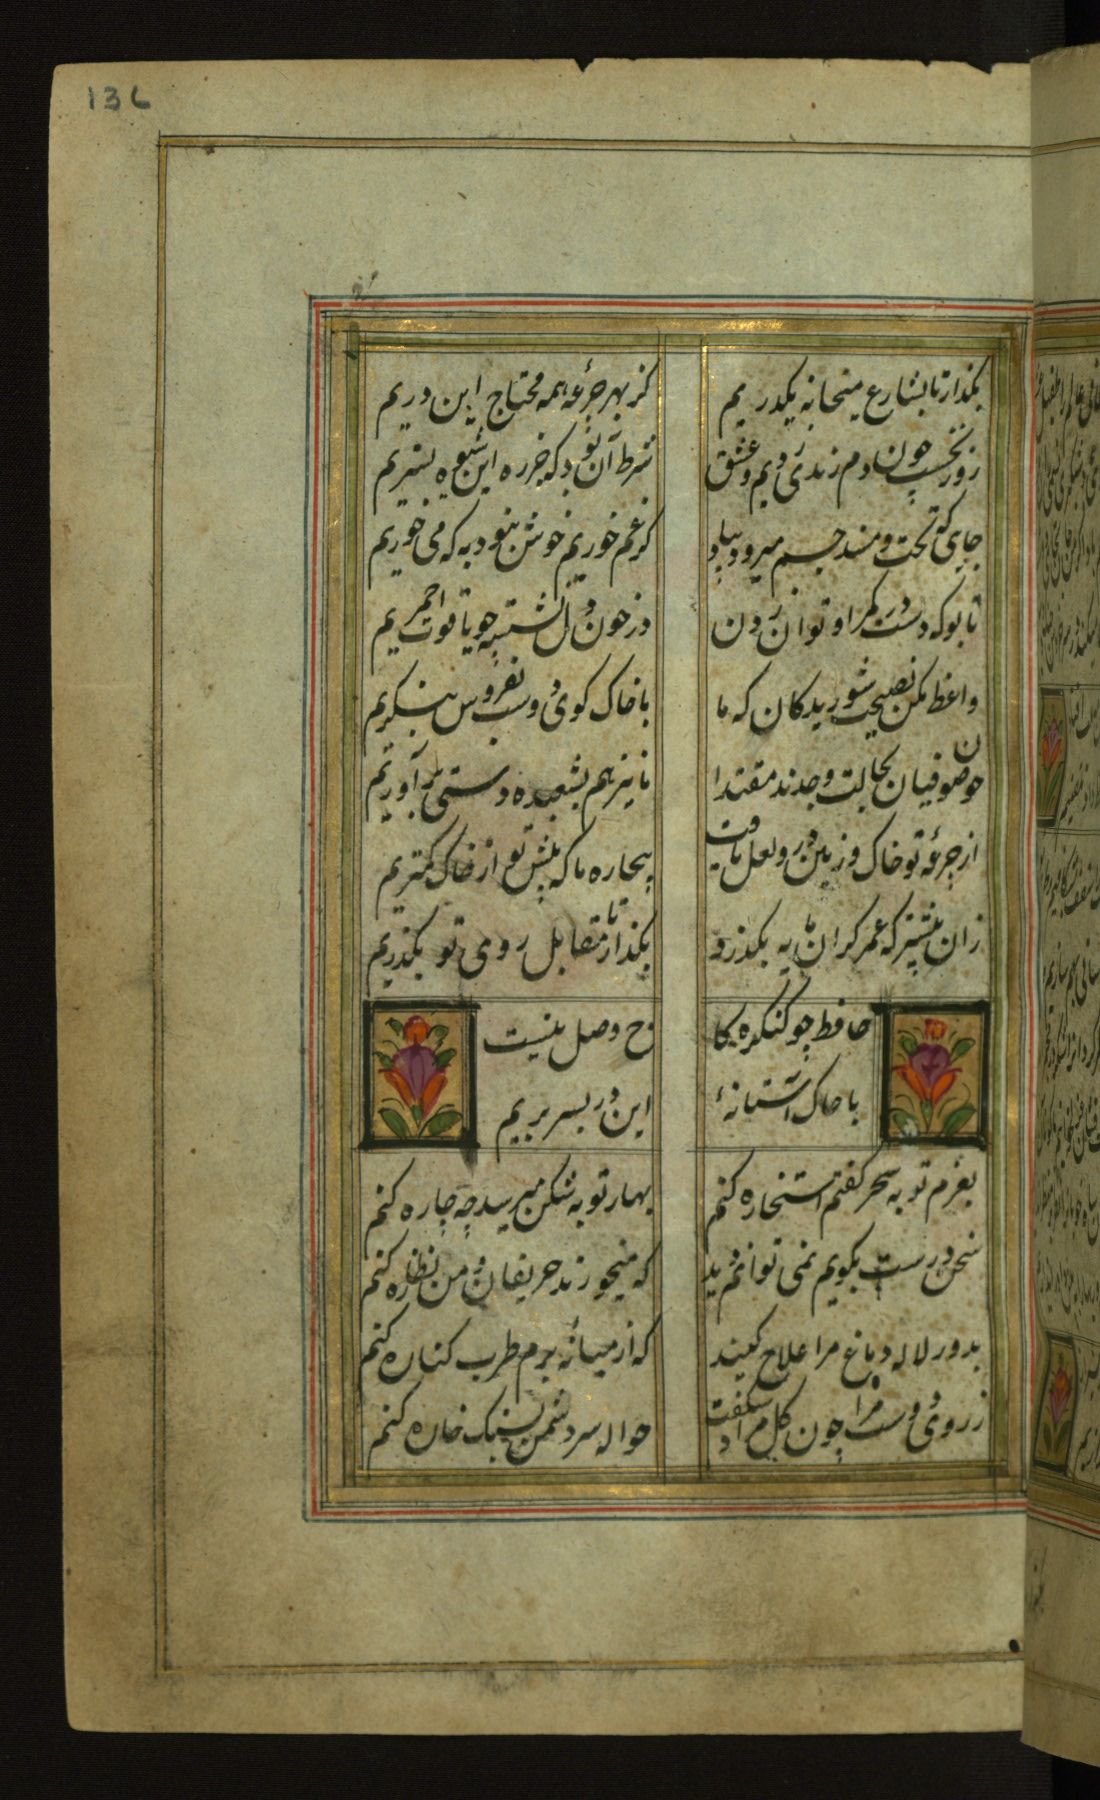 136
بگذار تا بشارع میخانه بگذریم کز بهر جرعهٔ همه محتاج این دریم
روز نخست چون دم رندی زدیم و عشق شرط آن بود که جز ره این شیوه نسپریم
جایی که تخت و مسند جم میرود بباد گر غم خوریم خوش نبود به که می خوریم
تا بو که دست در کمر او توان زدن در خون دل نشسته چو یاقوت احمریم
واعظ مکن نصیحت شوریدگان که ما با خاک کوی دوست بفردوس ننگریم
چون صوفیان بحالت وجدند مقتدا ما نیز هم بشعبده دستی برآوریم
از جرعهٔ تو خاک زمین در و لعل یافت بیچاره ما که پیش تو از خاک کمتریم
زان پیشتر که عمر گرانمایه بگذرد بگذار تا مقابل روی تو بگذریم
حافظ چو کنگره کا خ وصل نیست
با خاک آستانهٔ این در بسر بریم
بعزم توبه سحر گفتم استخاره کنم بهار توبه شکن میرسد چه چاره کنم
سخن درست بگویم نمی توانم دید که میخورند حریفان و من نظاره کنم
بدور لاله دماغ مرا علاج کنید که از میانهٔ بزم طرب کناره کنم
ز روی دوست مرا چون گل مراد شکفت حواله سر دشمن بسنگ خاره کنم